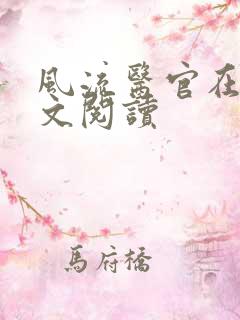 風流醫官在
文閱讀
馬府橋